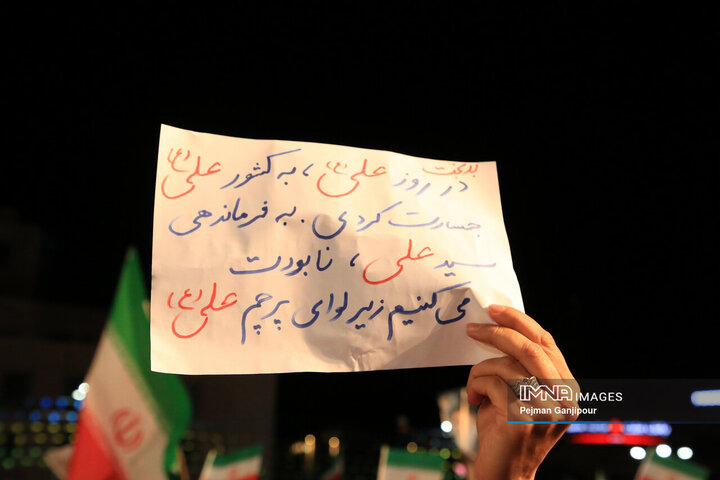 بدبخت
در روز علی(ع)، به کشور علی(ع)
جسارت کردی. به فرماندهی
سید علی، نابودت
می کنیم زیر لوای پرچم علی(ع)
IMNA IMAGES
Pejman Ganjipour